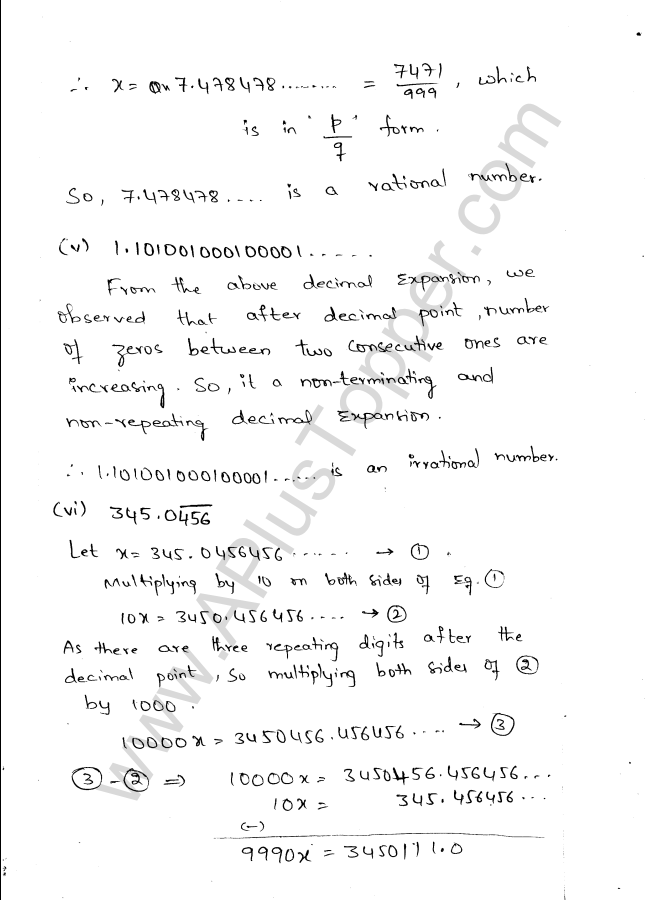 ∴ x = 7.478478......... = 7471/999, which
is in 'p/q' form.
So, 7.478478.... is a rational number.
(v) 1.101001000100001.....
From the above decimal Expansion, we
observed that after decimal point, number
of zeros between two consecutive ones are
increasing. So, it a non-terminating and
non-repeating decimal Expantion.
∴ 1.101001000100001...... is an irrational number.
(vi) 345.0\overline{456}
Let x = 345.0456456...... → ①.
Multiplying by 10 on both sides of Eq. ①
10x = 3450.456456.... → ②
As there are three repeating digits after the
decimal point, so multiplying both sides of ②
by 1000.
10000x = 3450456.456456.... → ③
③ - ② ⇒ 10000x = 3450456.456456...
10x = 345.456456...
(-)
9990x = 3450111.0
www.APlusTopper.com